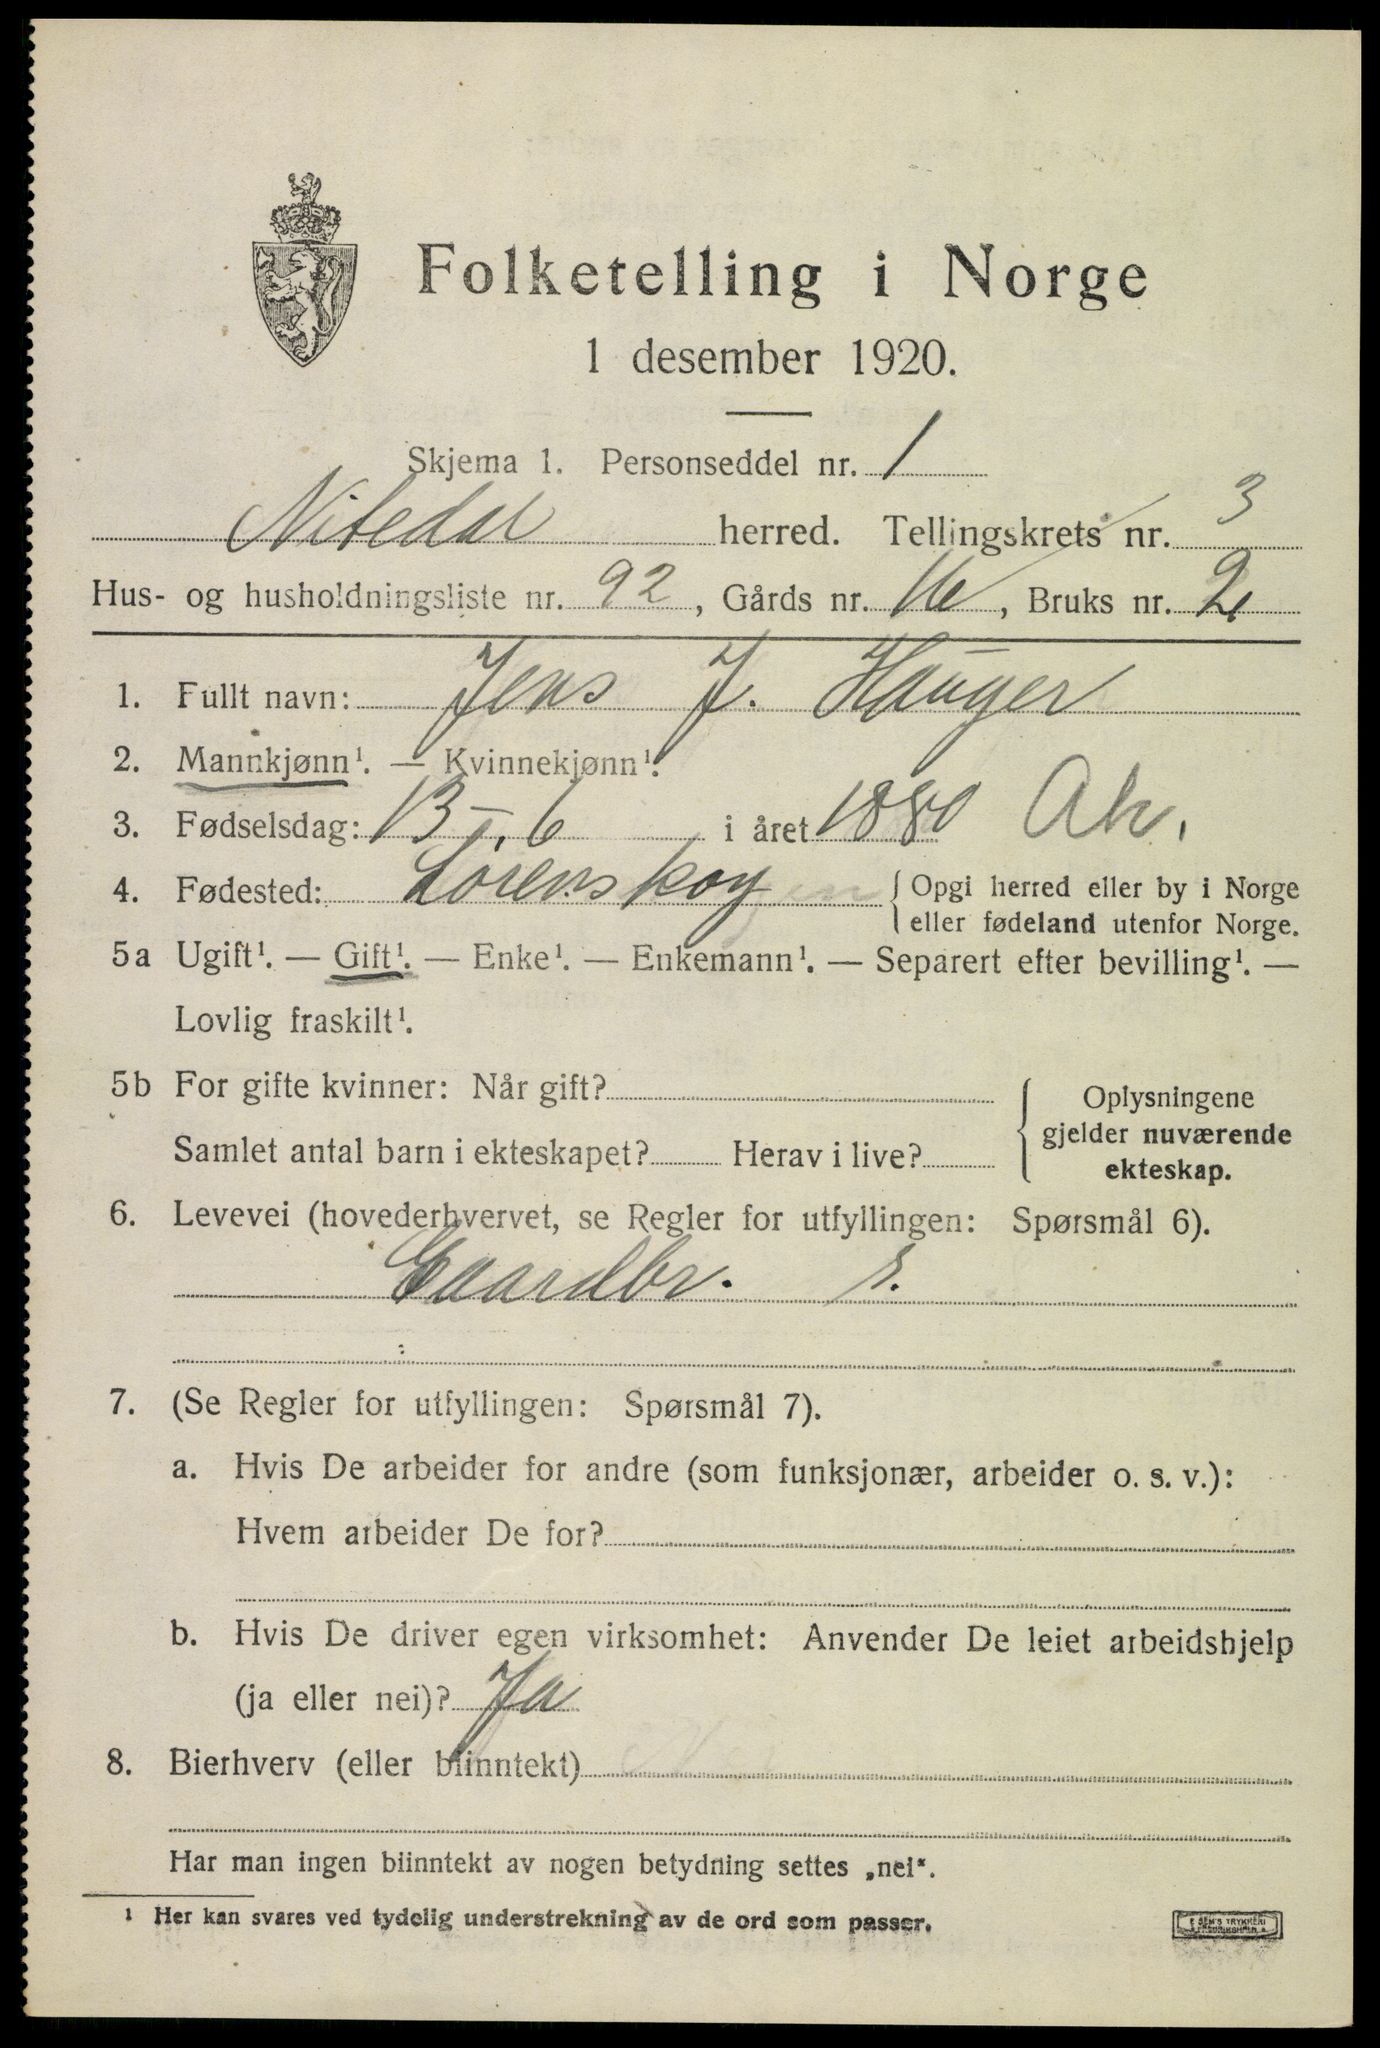 Folketelling i Norge
1 desember 1920.
Skjema 1. Personseddel nr. 1
Nitedal herred. Tellingskrets nr. 3
Hus- og husholdningsliste nr. 92, Gårds nr. 16, Bruks nr. 2
1. Fullt navn: Jens J. Hauger
2. Mannkjønn¹. — Kvinnekjønn¹.
3. Fødselsdag: 13-6 i året 1880 Ak.
4. Fødested: Lørenskog {Opgi herred eller by i Norge
eller fødeland utenfor Norge.
5a Ugift¹. — Gift¹. — Enke¹. — Enkemann¹. — Separert efter bevilling¹. —
Lovlig fraskilt¹.
5b For gifte kvinner: Når gift?
Samlet antal barn i ekteskapet? Herav i live?
{Oplysningene
gjelder nuværende
ekteskap.
6. Levevei (hovederhvervet, se Regler for utfyllingen: Spørsmål 6).
Gaardbr. s.
7. (Se Regler for utfyllingen: Spørsmål 7).
a. Hvis De arbeider for andre (som funksjonær, arbeider o. s. v.):
Hvem arbeider De for?
b. Hvis De driver egen virksomhet: Anvender De leiet arbeidshjelp
(ja eller nei)? Ja
8. Bierhverv (eller biinntekt)
Har man ingen biinntekt av nogen betydning settes „nei".
¹ Her kan svares ved tydelig understrekning av de ord som passer.
E. SEM'S TRYKKERI
FREDRIKSHALD